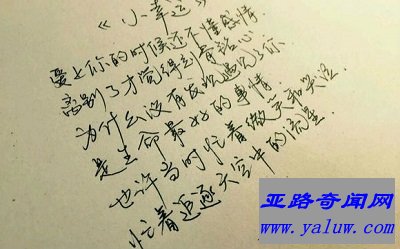 《小幸运》
爱上你的时候还不懂感情
离别了才觉得刻骨铭心
为什么没有发现遇见了你
是生命最好的事情
也许当时忙着微笑和哭泣
忙着追逐天空中的流星
亚路奇闻网
www.yaluw.com